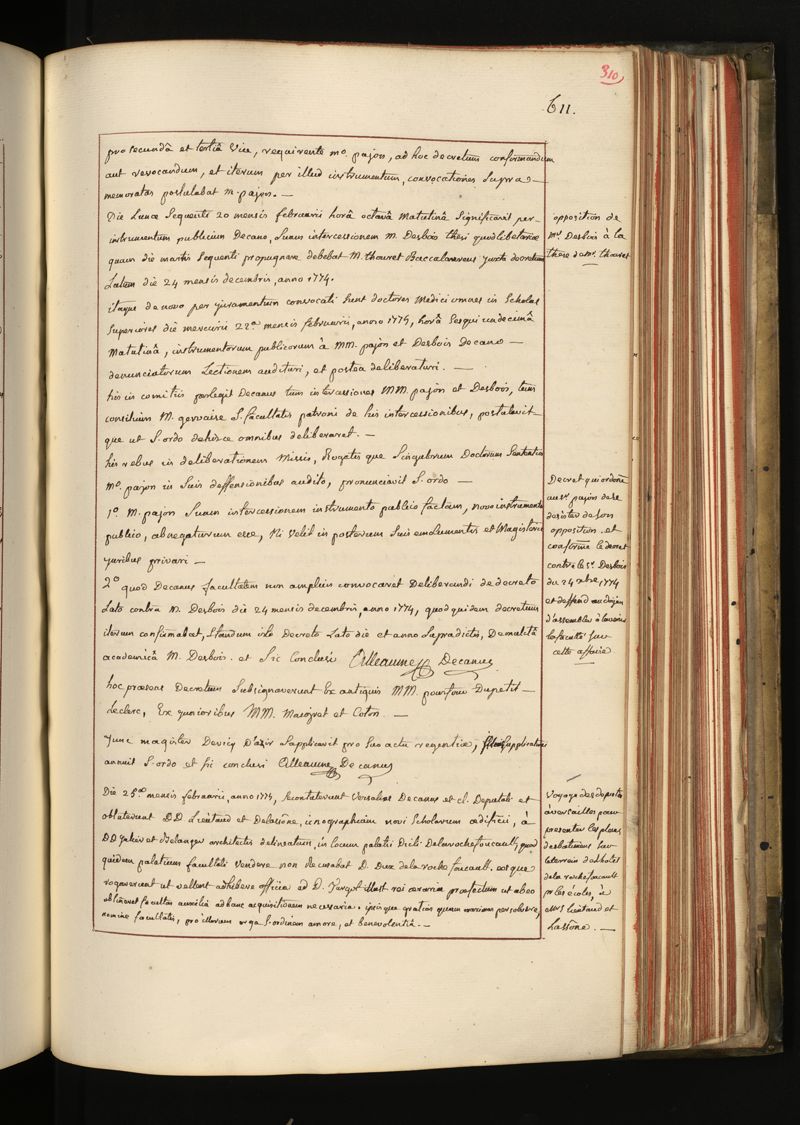 310
611.
pro secundâ et tertiâ vice, requirente mo. pajon, ad hoc decretum confirmandum
aut revocandum, et iterum per illud instrumentum, convocationes supra-
memoratas postulabat m. pajon. —
Die Lunae Sequenti 20 mensis februarii horâ octavâ matutinâ Significavit per-
instrumentum publicum Decano, Suam intercessionem M. Desbois thesi quodlibetariae
quam die martis Sequenti propugnare debebat M. thouret Baccalaureus juxta decretum
Latum die 24 mensis decembris, anno 1774.
itaque de novo per juramentum convocati Sunt doctores Medici omnes in Scholas
Superiores die mercurii 22a mensis februarii, anno 1775, horâ Sesqui undecimâ
Matutinâ, instrumentorum publicorum à MM. pajon et Desbois Decano —
denunciatorum Lectionem audituri, et postea deliberaturi. —
his in comitiis perlegit Decanus tum intercessiones MM. pajon et Desbois, tum
consilium M. gervaise S. facultatis patroni de his intercessionibus, postulavit-
que ut S. ordo dehisce omnibus deliberaret. —
his rebus in deliberationem Missis, Rogatis que Singulorum Doctorum Sententiis
Mo. pajon in Suis deffensionibus audito, pronunciavit S. ordo —
1o. M. pajon Suam intercessionem instrumento publico factam, novo instrumento
publico, abnegaturum esse, Ni velit in posterum Suis emolumentis et Magistri
juribus privari —
2o quod Decanus facultatem non amplius convocaret Deliberandi de decreto
Lato contra M. Desbois die 24 mensis decembris, anno 1774, quod quidem decretum
iterum confirmabat, Standum isto Decreto Lato die et anno Supradictis, De multâ
academicâ M. Desbois. et Sic Conclusi Alleaume Decanus
hoc praesens Decretum Subsignaverunt Ex antiquis MM. pourfour Dupetit —
Leclerc, Ex junioribus MM. Maigret et Coton. —
Tunc magister Devicq D'azir Supplicavit pro Suo actu regentiae, Supplicature
annuit S. ordo et sic conclusi Alleaume Decanus
Die 25a mensis februarii, anno 1775, Se contulerunt Versalias Decanus et cl. Deputati et
obtulerunt DD Lieutaud et Delassône, icnographiam novi Scholarum aedificii, à
DD Jakin et Belanger architectis delineatum, in locum palatii Dicti Delarochefoucault, quod
quidem palatium facultati vendere non Recusabat D. Dux de la roche foucault. eos que
rogaverunt ut vellent adhibere officia ad D. Turgot illust. rei aerariae praefectum ut ab eo
obtineret facultas auxilia ad hanc acquisitionem necessaria. ipsis que gratias quam maximas persolvere,
nomine facultatis, pro illorum erga S. ordinem amore, et benevolentiâ. —
opposition de
mr. Desbois à la
thèse de mr. thouret
Decret qui ordonne
au sr. pajon de se
desister de son
opposition. et
confirme le decret
contre le Sr. Desbois
du 24 xbre 1774
et deffend au doyen
d'assembler à l'avenir
la faculté sur
cette affaire
Voyage des deputés
à versailles pour
presenter les plans
des batimens sur
le terrein de l'hotel
de la rochefoucault
pr les écoles, à
Mrs Lieutaud et
Lassône. —